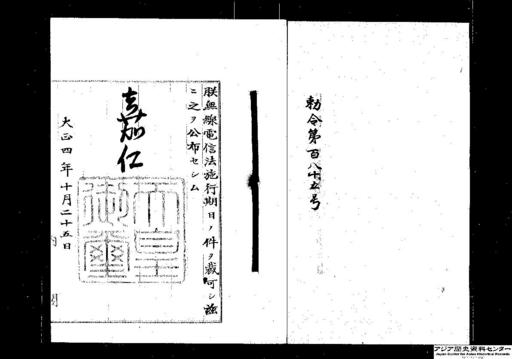 勅令第百八十五号
朕無線電信法施行期日ノ件ヲ裁可シ茲
ニ之ヲ公布セシム
嘉仁
天皇御璽
大正四年十月二十五日
内閣
アジア歴史資料センター
Japan Center for Asian Historical Records